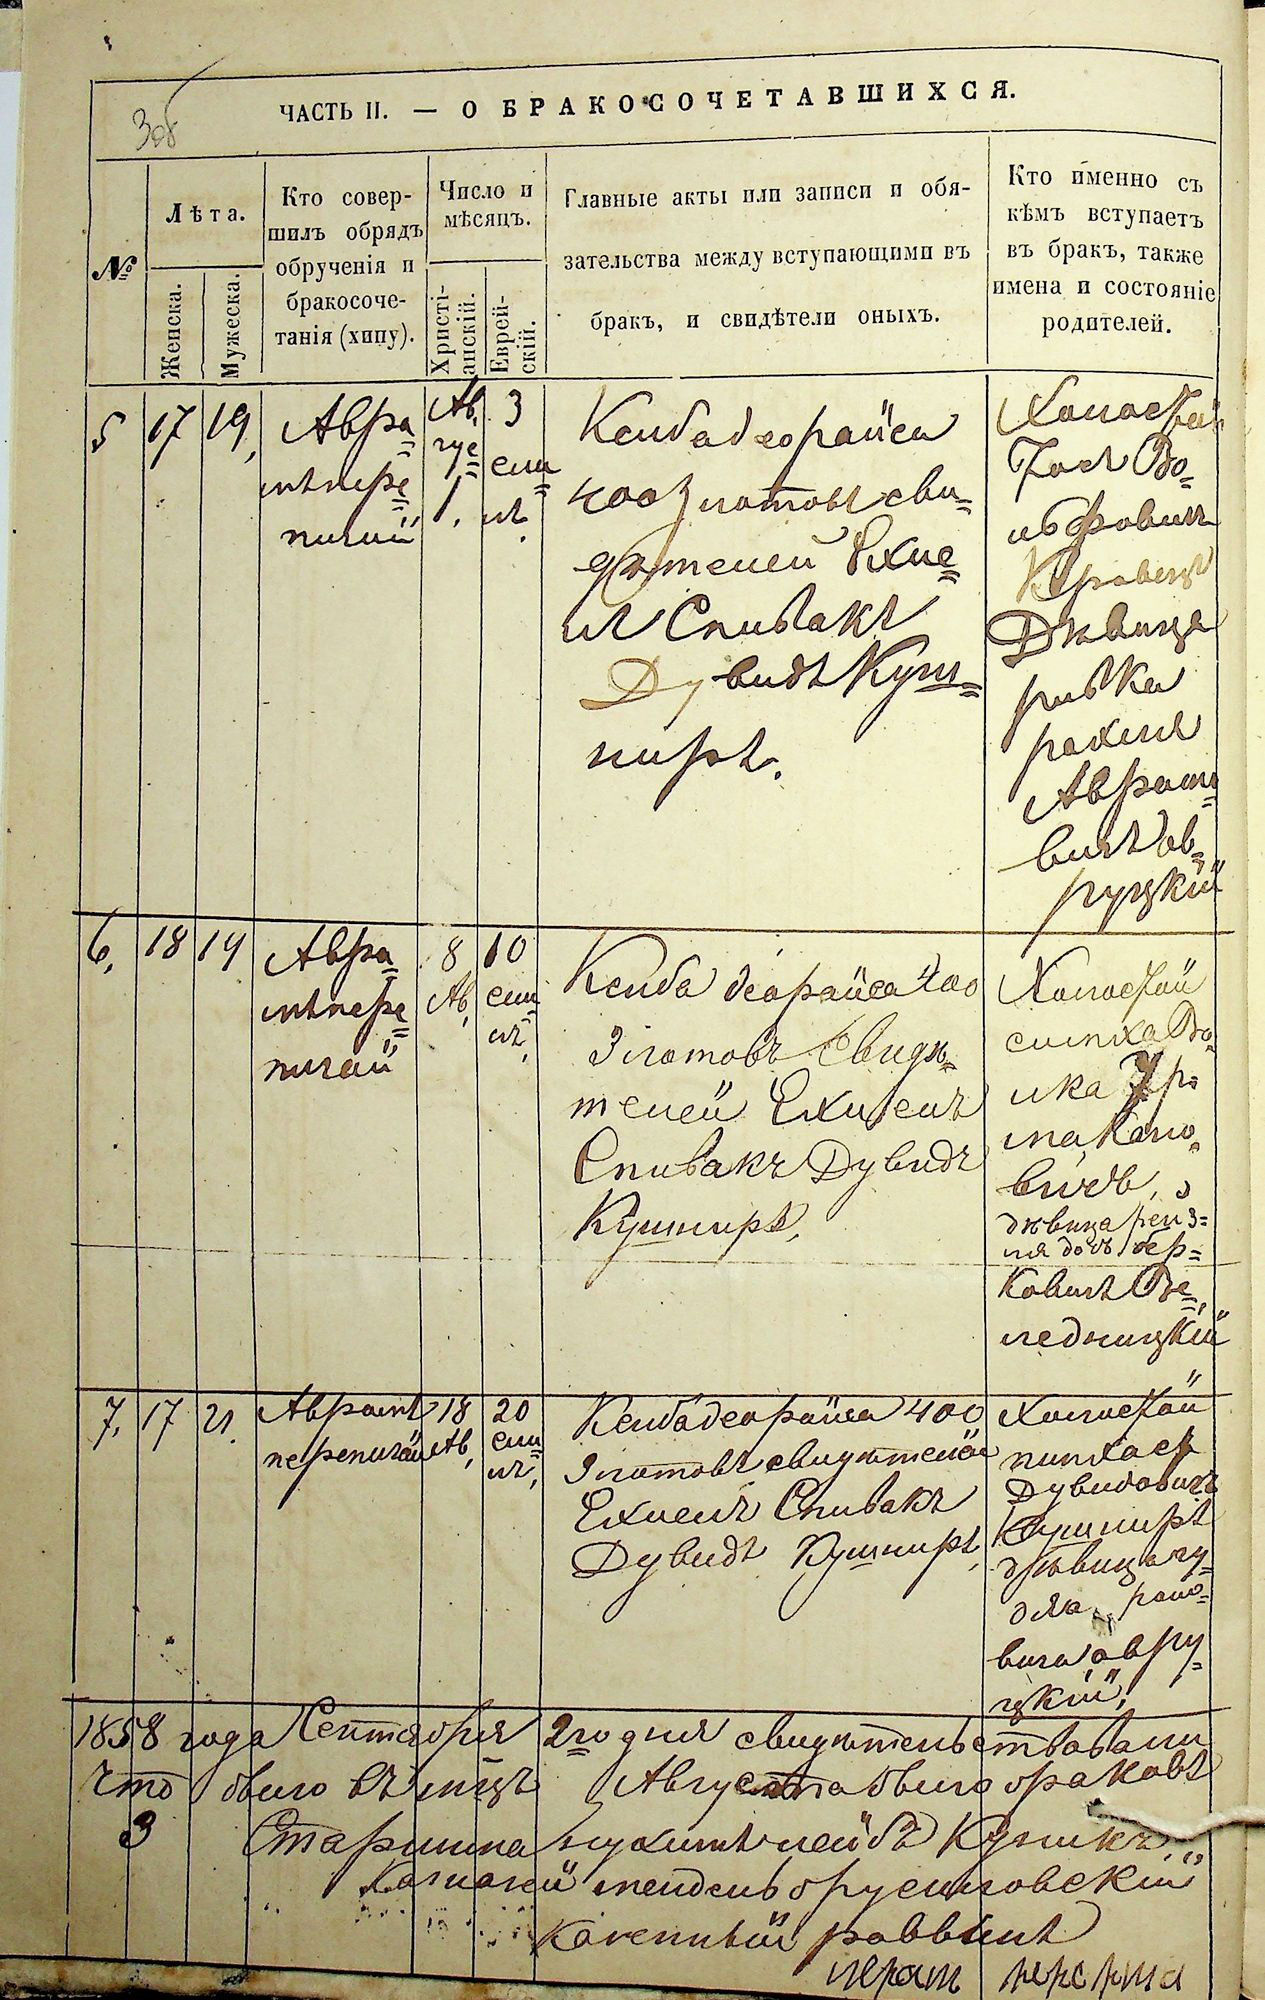 ЧАСТЬ II. — О БРАКОСОЧЕТАВШИХСЯ.
№
Лѣта.
Женска.
Мужеска.
Кто совер-
шилъ обрядъ
обрученія и
бракосоче-
танія (хипу).
Число и
мѣсяцъ.
Христі-
анскій.
Еврей-
скій.
Главные акты или записи и обя-
зательства между вступающими въ
бракъ, и свидѣтели оныхъ.
Кто именно съ
кѣмъ вступаетъ
въ бракъ, также
имена и состояніе
родителей.
5
17
19
Авра=
мъ пере=
пичай
Ав,
гус=
1.
3
ели=
лъ.
Кейба деорайса
400 злотовъ сви=
дѣтелей Ехие=
лъ Спивакъ
Дувидъ Куш=
ниръ.
Холостой
Во=
льфовичъ
Кравецъ
Дѣвица
ривка
рахля
Аврамо=
вичъ ов=
руцкій
6,
18
19
Авра=
мъ пере=
пичай
8
Ав,
10
ели=
лъ,
Кейба деорайса 400
злотовъ Свидѣ=
телей Ехиелъ
Спивакъ Дувидъ
Кушниръ,
Холостой
симха Во=
лка
дѣвица рейз=
ля дочь бер=
ковичъ Ве=
ледницкій
7,
17
21.
Аврамъ
перепичай
18
Ав,
20
ели=
лъ,
Кейба деорайса 400
злотовъ свидѣтелей
Ехиелъ Спивакъ
Дувидъ Кушниръ,
Холостой
пинхасъ
Дувидовичъ
Кушниръ
дѣвица гу=
для
вича овру=
цкій,
1858 года Сентября 2го дня свидѣтельствовали
что было въ мцѣ Августа было браковъ
3 Старшина нухимъ лейбъ
Казначей мендель брусиловскій
Казенный раввинъ